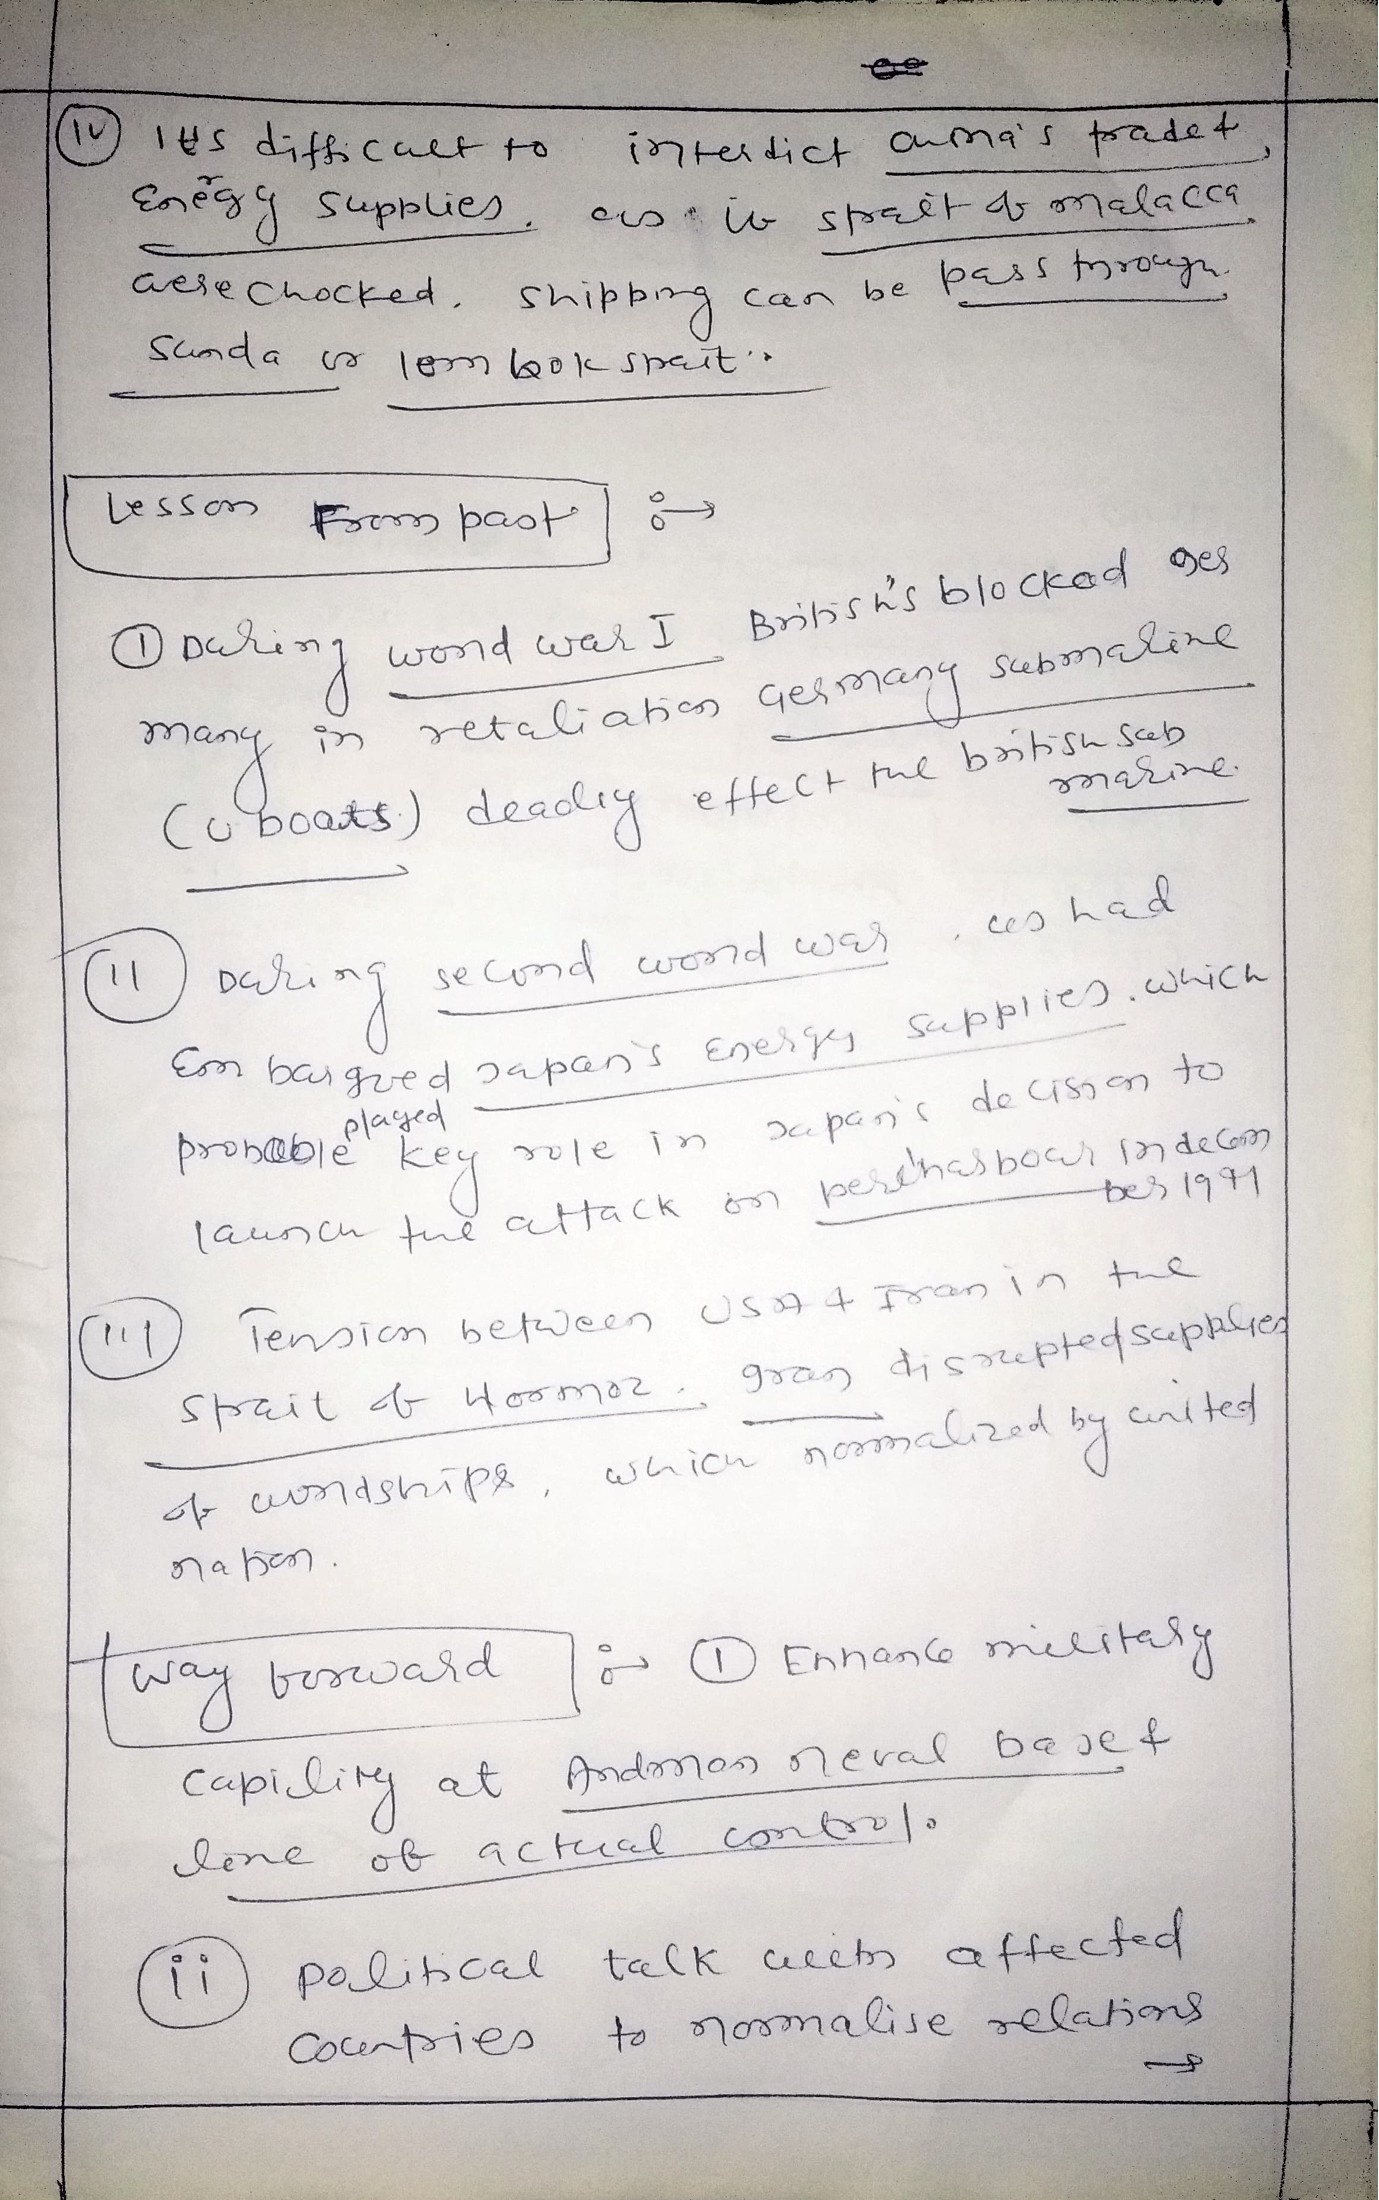 (iv) Its difficult to interdict China's trade &
Energy supplies. as if strait of malacca
were chocked. shipping can be pass through
Sunda or lombok strait.
Lesson From past :→
① During world war I British's blockad ger
many in retaliation Germany submarine
(U boats) deadly effect the british sub
marine.
(ii) During second world war, us had
Embargoed Japan's Energy supplies. which
played
probable key role in Japan's decision to
launch the attack on perl harbour in decem
ber 1941
(iii) Tension between USA & Iran in the
strait of Hormoz. Iran disrupted supplies
of worldships, which normalized by united
nation.
Way forward :→ ① Enhance military
capility at Andman neval base &
line of actual control.
(ii) political talk with affected
countries to normalise relations
→